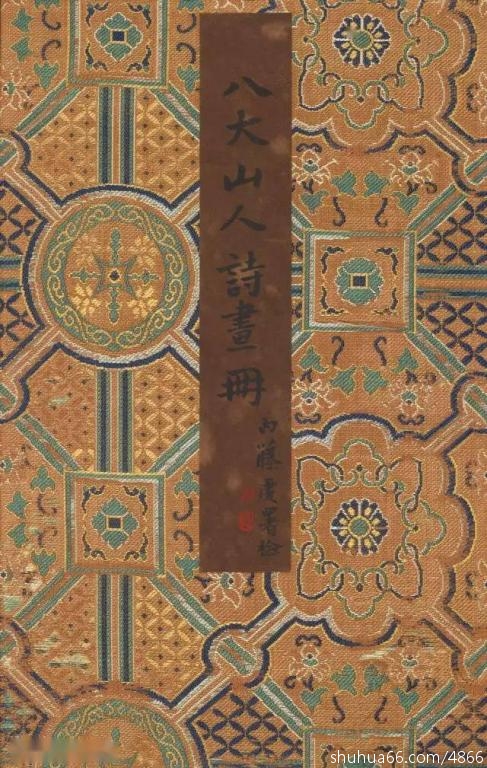 八大山人詩畫冊
內藤虎署檢
shuhua66.com/4866